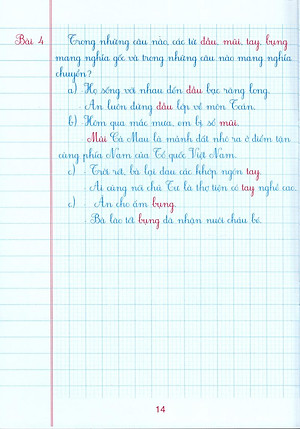 Bài 4 Trong những câu nào, các từ đầu, mũi, tay, bụng
mang nghĩa gốc và trong những câu nào mang nghĩa
chuyển?
a) Họ sống với nhau đến đầu bạc răng long.
An luôn đứng đầu lớp về môn Toán.
b) Hôm qua mắc mưa, em bị sổ mũi.
Mũi Cà Mau là mảnh đất nhô ra ở điểm tận
cùng phía Nam của Tổ quốc Việt Nam.
c) Trời rét, bà lại đau các khớp ngón tay.
Ai cũng nói chú Tư là thợ tiện có tay nghề cao.
c) Ăn cho ấm bụng.
Bà lão tốt bụng đã nhận nuôi cháu bé.
14